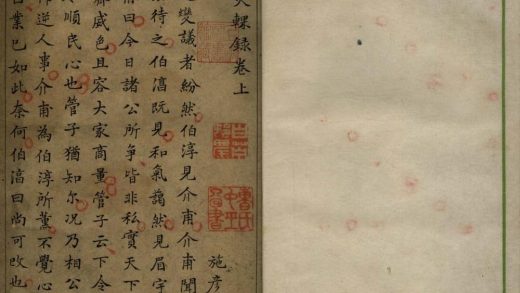 炙輠録卷上
施彥
變議者紛然伯淳見介甫介甫聞
待之伯淳既見和氣藹然見眉宇
曰今日諸公所爭皆非私實天下
威色且容大家商量管子云下令
順民心也管子猶知尔況乃相公
逆人事介甫為伯淳所薰不覺心
業已如此奈何伯淳曰尚可改也